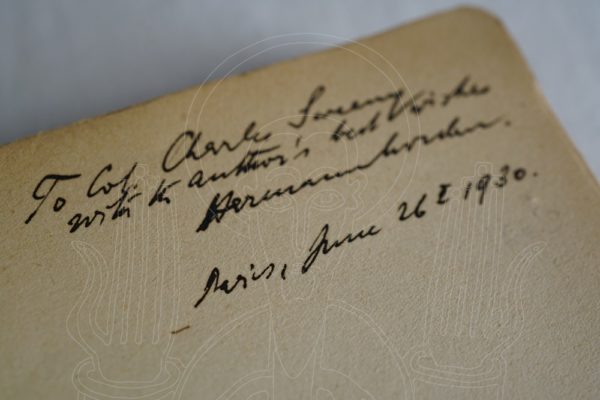 To Col. Charles Sweeny
with the author's best wishes
Hermann Norden.
Paris, June 26 1930.